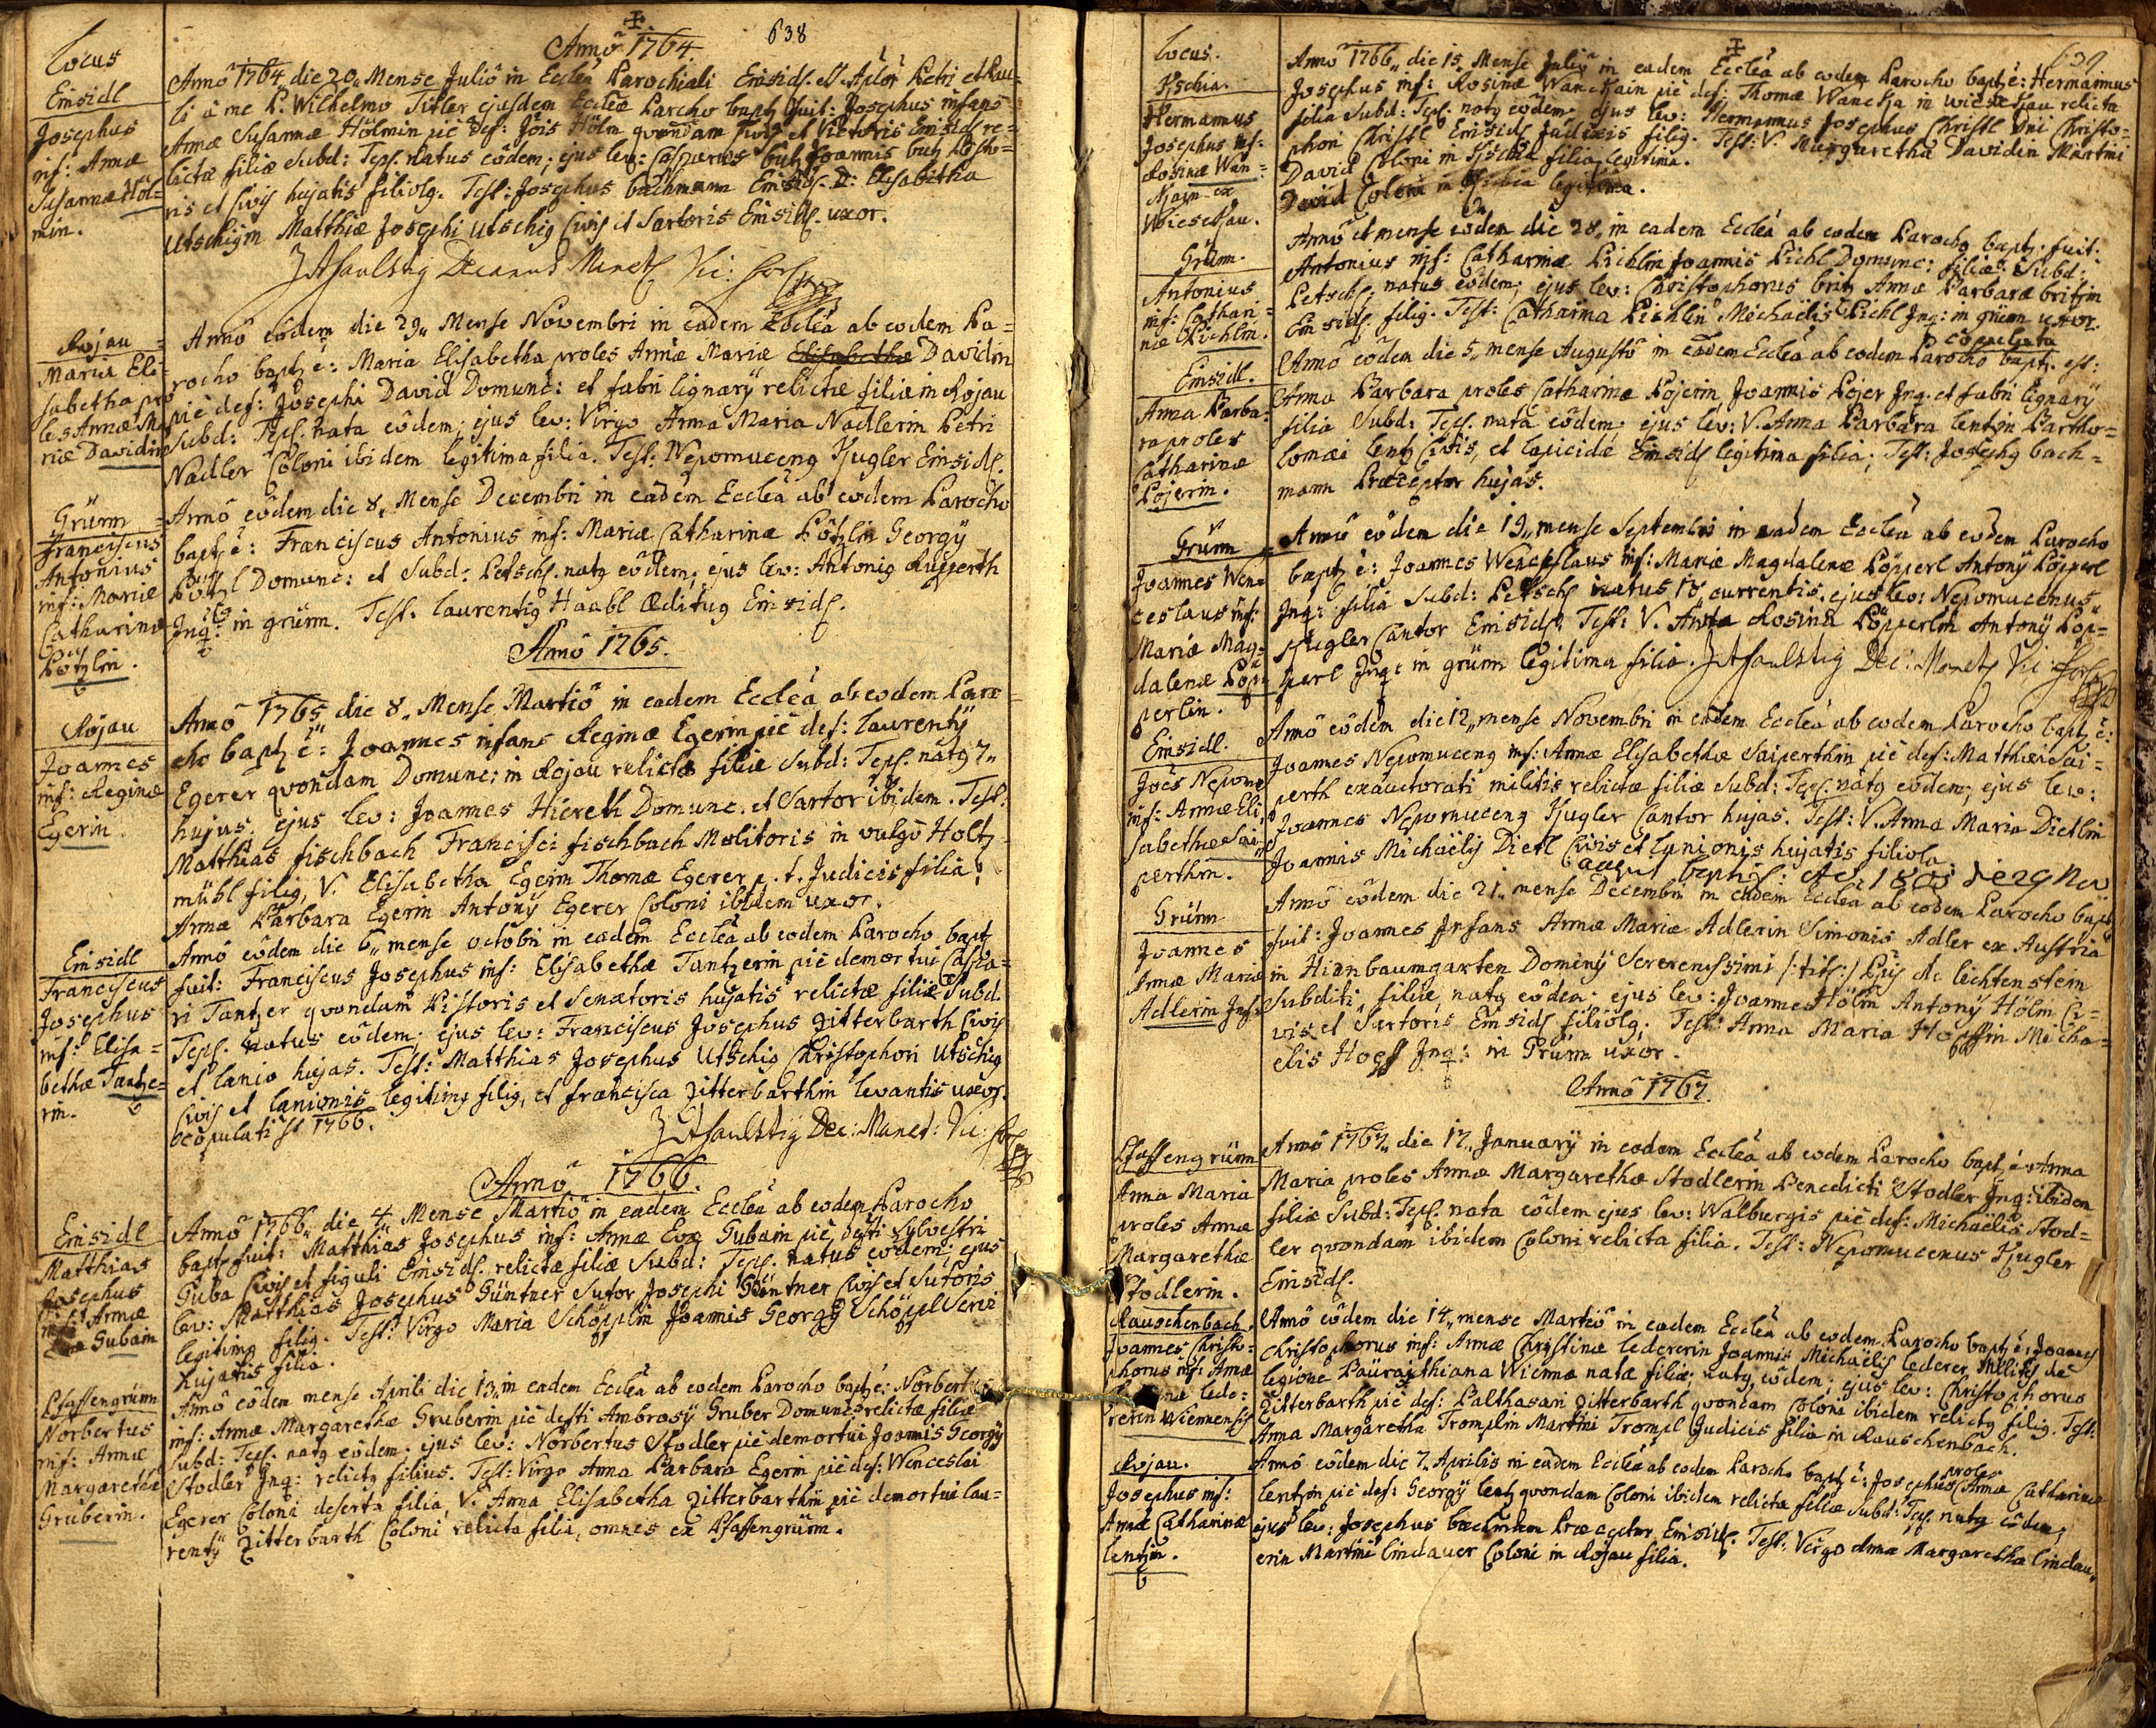 638
Locus
Einsidl
Josephus
inf: Annæ
Susannæ Höl=
min.
Annô 1764
Annô 1764 die 20„ Mense Juliô in Eccleâ Parochiali Einsidl. SS. Aplor Petri et Pau=
li à me P. Wilhelmo Titler ejusdem Eccleæ Parcho bapt. fuit: Josephus infans
Annæ Susannæ Hölmin piè def: Jõis Hölm quondam re=
lictæ filiæ Subd: Tepl. Natus eôdem; ejus lev: Casparus butz Joannis butz
ris et civis hujatis filiolg. Test: Josephus bachmann Einsidl. D: Elisabetha
Utschigin Matthiæ Josephi Utschig Civis et Sartoris Einsidl. uxor.
Decanus
Rojau
Maria Eli=
sabetha pro
les Annæ Ma
riæ Davidin
Annô eôdem die 29„ Mense Novembri in eadem Eccleâ ab eodem Pa=
rocho bapt. è: Maria Elisabetha proles Annæ Mariæ Elisabethæ Davidin
piè def: Josephi David Domunc: et fabri lignarÿ relictæ filiæ in Rojau
Subd: Tepl. nata eôdem; ejus lev: Virgo Anna Maria Nadlerin Petri
Nadler Coloni ibidem legitima filia. Test: Nepomuceng Kugler Einsidl.
Grünn
Franciscus
Antonius
inf: Mariæ
Catharinæ
Pötzlin.
Annô eôdem die 8„ Mense Decembri in eâdem Eccleâ ab eodem Parocho
bapt. è: Franciscus Antonius inf: Mariæ Catharinæ Pötzlin Georgÿ
Pötzl Domunc: et Subd: Petsch. natg eôdem; ejus lev: Antonig Rupperth
Inq: in grünn. Test: Laurentig Haabl Æditug Einsidl.
Annô 1765.
Rojau
Joannes
inf: Reginæ
Egerin.
Annô 1765 die 8„ Mense Martiô in eadem Eccleâ ab eodem Paro=
cho bapt. è: Joannes infans Reginæ Egerin piè def: Laurentÿ
Egerer quondam Domunc: in Rojau relictæ filiæ Subd: Tepl. natg 7„
hujus; ejus lev: Joannes Hiereth Domunc. et Sartor ibidem. Test.
Matthias fischbach Francisci fischbach Molitoris in vulgô Holtz=
mühl filig, V. Elisabetha Egerin Thomæ Egerer p. t. Judicis filia,
Anna Barbara Egerin Antonÿ Egerer Coloni ibidem uxor.
Einsidl
Franciscus
Josephus
inf: Elisa=
bethæ Tantze=
rin.
Annô eôdem die 6„ mense octobri in eadem Eccleâ ab eodem Parocho bapt.
fuit: Franciscus Josephus inf: Elisabethæ Tantzerin piè demortui Caspa=
ri Tantzer quondam Pistoris et Senatoris hujatis relictæ filiæ Subd.
Tepl. natus eôdem; ejus lev: Franciscus Josephus Zitterbarth Civis
et lanio hujas. Test: Matthias Josephus Utschig Christophori Utschig
Civis et lanionis legitimg filig, et francisca Zitterbarthin levantis uxor.
copulati st 1766.
Dec: Manet:
Annô 1766.
Einsidl
Matthias
Josephus
inf: Annæ
Evæ Gubain
Annô 1766 die 4 Mense Martiô in eadem Eccleâ ab eodem Parocho
bapt. fuit: Matthias Josephus inf: Annæ Evæ Gubain piè defti Sylvestri
Guba Civis et figuli Einsidl. relictæ filiæ Subd: Tepl. natus eodem; ejus
lev: Matthias Josephus Güntner Sutor Josephi Güntner Civis et Sutoris
legitimg filig. Test: Virgo Maria Schöpplin Joannis Georgÿ Schöppl
hujatis filia.
Pfaffengrünn
Norbertus
inf: Annæ
Margarethæ
Gruberin.
Annô eôdem mense Aprili die 13„ in eadem Eccleâ ab eodem Parocho bapt è: Norbertus
inf: Annæ Margarethæ Gruberin piè defti Ambrosÿ Gruber Domunc: relictæ filiæ
Subd: Tepl. natg eôdem. ejus lev: Norbertus Stodler piè demortui Joannis Georgÿ
Stodler Inq: relictg filius. Test: Virgo Anna Barbara Egerin piè def: Wenceslai
Egerer Coloni deserta filia, V. Anna Elisabetha Zitterbarthin piè demortui Lau=
rentÿ Zitterbarth Coloni relicta filia, omnes ex Pfaffengrünn.
639
Locus.
Pschia.
Hermannus
Josephus inf:
Rosinæ Wan=
kain ex
Wieskau.
Annô 1766„ die 15„ Mense Juliô in eadem Eccleâ ab eodem Parocho bapt. è: Hermannus
Josephus inf: Rosinæ Wanckain piè def: Thomæ Wancka in Wieskau relicta
filia Subd: Tepl. natg eôdem. ejus lev: Hermannus Josephus Christl Dni Christo=
phori Christl Einsidl Judicis filig. Test: V. Margaretha Davidin Martini
David Coloni in Pschia filia legitima.
David Coloni in Pschia legitima.
Grünn.
Antonius
inf: Cathari=
næ Pichlin.
Annô et mense eôdem die 28„ in eadem Eccleâ ab eodem Parocho bapt. fuit.
Antonius inf: Catharinæ Pichlin Joannis Pichl Domunc: filiæ Subd:
Petsch. natus eôdem; ejus lev: Christophorus britz Annæ Barbaræ britzin
Einsidl. filig. Test: Catharina Pichlin Michaëlis Pichl Inq: in grünn uxor.
copulata
Einsidl.
Anna Barba=
ra proles
Catharinæ
Pojerin.
Annô eôdem die 5„ mense Augustô in eâdem Eccleâ ab eodem Parocho bapt. est:
Anna Barbara proles Catharinæ Pojerin Joannis Pojer Inq. et fabri lignarÿ
filia Subd: Tepl. nata eôdem; ejus lev: V. Anna Barbara Lentzin Bartho=
lomæi Lentz Civis, et lapicidæ Einsidl legitima filia; Test: Josephg bach=
mann Præceptor hujas.
Grünn
Joannes Wen=
ceslaus inf:
Mariæ Mag=
dalenæ Pöp=
perlin.
Annô eôdem die 19„ mense Septembri in eadem Eccleâ ab eôdem Parocho
bapt. è: Joannes Wenceslaus inf: Mariæ Magdalenæ Pöpperl Antonÿ Pöpperl
Inq: filiæ Subd: Petsch natus 18 currentis. ejus lev: Nepomucenus
Kugler Cantor Einsidl. Test: V. Anna Rosina Pöpperlin Antonÿ Pöp=
perl Inq: in grünn legitima filia.
Einsidl.
Joẽs Nepom:
inf: Annæ Eli=
sabethæ Sai=
perthin.
Annô eôdem die 12„ mense Novembri in eâdem Eccleâ ab eodem Parocho bapt. è:
Joannes Nepomuceng inf: Annæ Elisabethæ Saiperthin piè def: Matthæi Sai=
perth exauctorati militis relictæ filiæ Subd: Tepl. natg eodem; ejus lev:
Joannes Nepomuceng Kugler Cantor hujas. Test: V. Anna Maria Dietlin
Joannis Michaëlis Dietl Civis et lanionis hujatis filiola.
Grünn
Joannes
Annæ Mariæ
Adlerin Inf:
Annô eôdem die 21„ mense Decembri in eâdem Eccleâ ab eodem Parocho bapt.
fuit: Joannes Infans Annæ Mariæ Adlerin Simonis Adler ex Austria
in Hiernbaumgarten Dominÿ Serenissimi /:tit:/ Pris de lichtenstein
Subditi, filiæ, natg eôdem; ejus lev: Joannes Hölm Antonÿ Hölm Ci=
vis et Sartoris Einsidl filiolg. Test: Anna Maria Hoeffin Micha=
elis Hoeff Inq: in Grünn uxor.
Annô 1767.
Pfaffengrünn
Anna Maria
proles Annæ
Margarethæ
Stodlerin.
Annô 1767„ die 17„ Januarÿ in eodem Eccleâ ab eodem Parocho bapt. è: Anna
Maria proles Annæ Margarethæ Stodlerin Benedicti Stodler Inq: ibidem
filiæ Subd: Tepl. nata eôdem ejus lev: Walburgis piè def: Michaëlis Stod=
ler quondam ibidem Coloni relicta filia. Test: Nepomucenus Kugler
Einsidl.
Rauschenbach.
Joannes Christo=
phorus inf: Annæ
lede=
rerin Wiennensis
Annô eôdem die 14„ mense Martiô in eadem Eccleâ ab eodem Parocho bapt. è: Joannes
Christophorus inf: Annæ Christinæ Ledererin Joannis Michaëlis Lederer Militis de
legione Paüraithiana Wiennæ natæ filiæ; natg eôdem; ejus lev: Christophorus
Zitterbarth piè def: Balthasari Zitterbarth quondam Coloni ibidem relictg filig. Test:
Anna Margaretha Tromplin Martini Trompl Judicis filia in Rauschenbach.
Rojau.
Josephus inf:
Annæ Catharinæ
Lentzin.
Annô eôdem die 7„ Aprilis in eâdem Eccleâ ab eodem Parocho bapt. è: Josephus proles Annæ Catharinæ
Lentzin piè def: Georgÿ Lentz quondam Coloni ibidem relictæ filiæ Subd: Tepl. natg eôdem;
ejus lev: Josephus bachmann Præceptor Einsidl. Test: Virgo Anna Margaretha Lindau=
erin Martini Lindauer Coloni in Rojau filia.